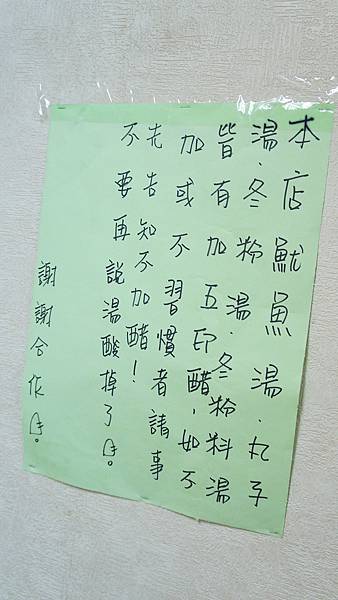 本店魷魚湯.丸子
湯.冬粉湯.冬粉料湯
皆有加五印醋,如不
加或不習慣者請事
先告知不加醋!
不要再說湯酸掉了
謝謝合作